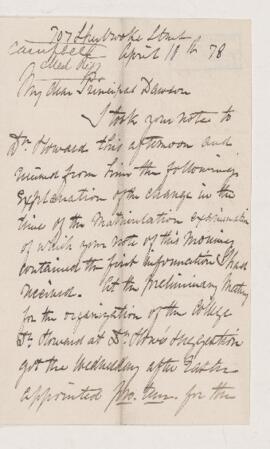 707 Sherbrooke Street
Campbell
April 18th 78
Med Regr
My dear Principal Dawson
I took your note to
Dr. Howard this afternoon and
received from him the following
explanation of the change in the
time of the Matriculation examination
of which your note of this morning
contained the first information I had
received. At the preliminary Meeting
for the organization of the College
Dr. Howard at Dr. Howe's suggestion
got the Wednesday after Easter
appointed pro. tem. for the